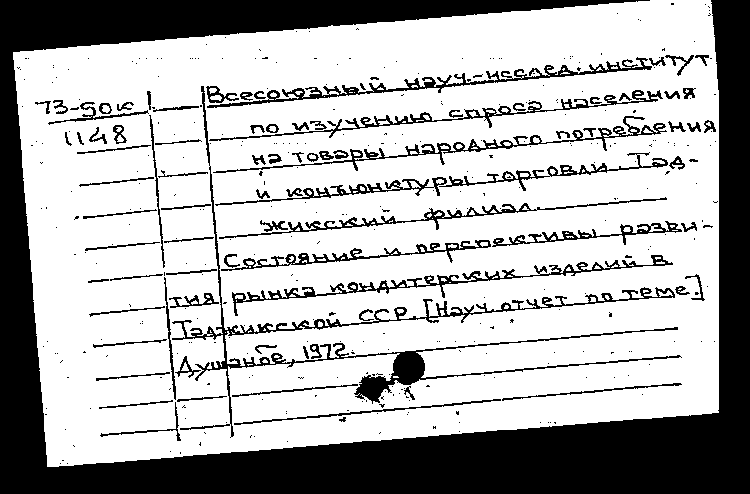 73-50к
1148
Всесоюзный науч.-исслед. институт
по изучению спроса населения
на товары народного потребления
и конъюнктуры торговли. Тад-
жикский филиал.
Состояние и перспективы разви-
тия рынка кондитерских изделий в
Таджикской ССР. [Науч. отчет по теме.]
Душанбе, 1972.